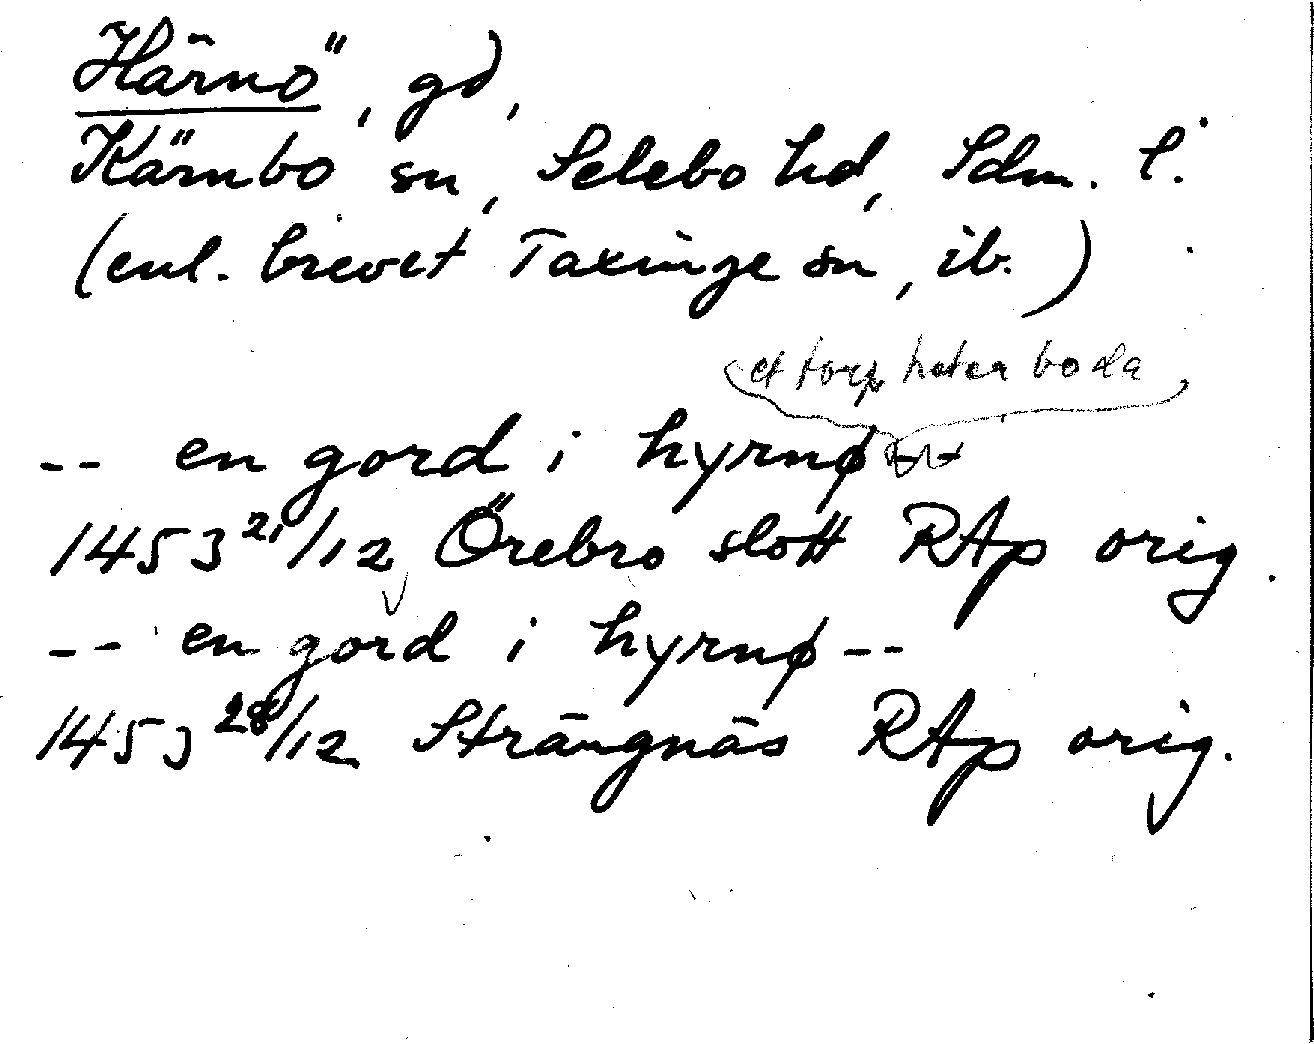 Härnö, gd,
Kärnbo sn, Selebo hd, Sdm. l.
(enl. brevet Taxinge sn, ib.)
et torp heter boda
-- en gord i hyrnø
1453 21/12 Örebro slott RAp orig.
-- en gord i hyrnø --
1453 28/12 Strängnäs RAp orig.